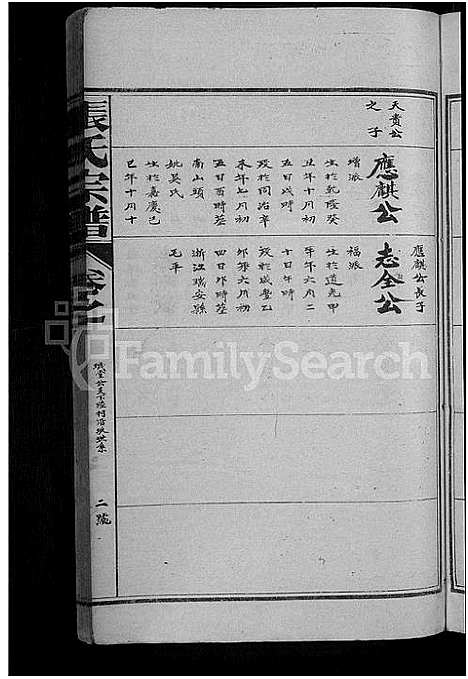 天貴公
之子
應麒公
增派
生於乾隆癸
丑年十月初
五日戌時
歿於同治辛
未年七月初
五日酉時葬
南山頭
姚吳氏
生於嘉慶己
巳年十月十
應麒公長子
志全公
福派
生於道光甲
午年六月二
十日午時
歿於咸豐乙
卯年六月初
四日卯時葬
浙江瑞安縣
毛平
張氏宗譜
卷之
二號
FamilySearch